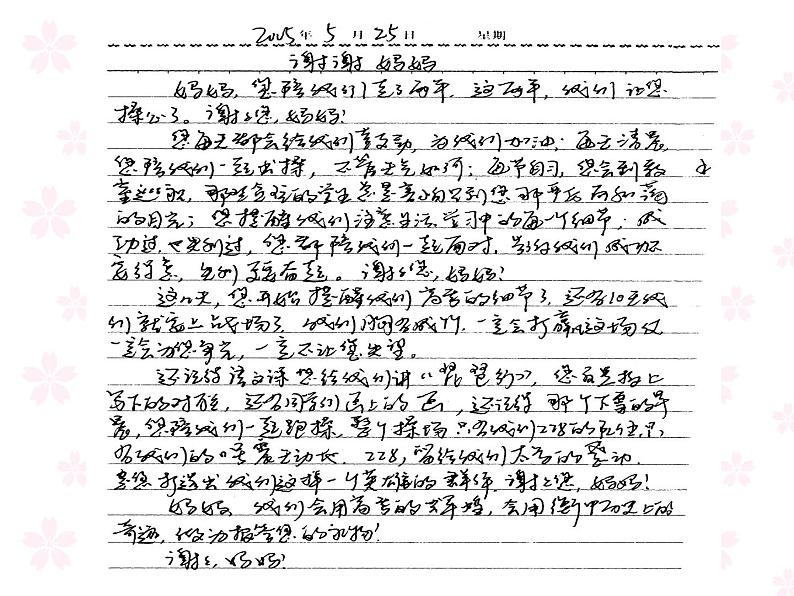 2005年 5 月 25 日 星期
谢谢妈妈
妈妈，您陪我们走了两年，这两年，我们让您
操心了。谢谢您，妈妈！
您每天都会给我们鼓劲，为我们加油；每天清晨
您陪我们一起出操，不管天气如何；每节自习，您会到教
室巡视，那些贪玩的学生总是害怕见到您那严厉而和蔼
的目光；您提醒我们注意生活学习中的每一个细节；成
功过，也失利过，您都陪我们一起面对，告诉我们成功不
要得意，失利了要奋起。谢谢您，妈妈！
这几天，您开始提醒我们高考的细节了，还有10天我
们就要上战场了，我们胸有成竹，一定会打赢这场仗
一定会为您争光，一定不让您失望。
还记得语文课您给我们讲《琵琶行》，您在黑板上
写下的对联，还有同学们画上的画，还记得那个下雪的早
晨，您陪我们一起跑操，整个操场只有我们228的女生，只
有我们的口号震天动地，228，留给我们太多的感动
是您打造出我们这样一个英雄的群体，谢谢您，妈妈！
妈妈，我们会用高考的辉煌，会用衡中历史上的
奇迹，做为报答您的礼物！
谢谢，妈妈！